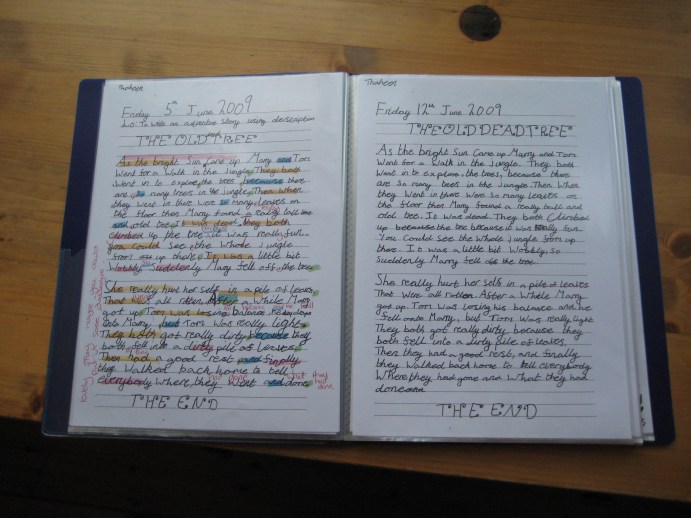 Thaheer
Friday 5th June 2009
L.o: To write an adjective story using description
THE OLD TREE
As the bright Sun Came up Marry and Tom
Went for a Walk in the Jungle. They both
Went in to explore, the trees, because there
are so many trees in the Jungle. Then When
they went in there were so many leaves on
the floor then Marry found a really tall
and old tree. It was dead. They both
climbed up the tree it was really fun.
You could see the Whole jungle
from up there. It was a little bit
Wobbly Suddenly Marry fell off the tree
She really hurt her self in a pile of leaves
That were all rotten. After a While Marry
got up Tom was losing balance
but Tom Was really light.
They both got really dirty because they
both fell into a dirty pile of leaves.
Then they had a good rest and finally
they Walked back home to tell
everybody Where they went and done
THE END
Thaheer
Friday 12th June 2009
THE OLD DEAD TREE
As the bright Sun Came up Marry and Tom
Went for a Walk in the Jungle. They both
Went in to explore, the trees, because there
are so many trees in the Jungle. Then When
they Went in there Were so many leaves on
the floor then Marry found a really tall and
old tree. It was dead. They both Climbed
up because the tree because it was really fun.
You Could See the Whole jungle from up
there. It was a little bit Wobbly, so
suddenly Marry fell off the tree.
She really hurt her self in a pile of leaves
That Were all rotten. After a While Marry
got up. Tom was losing his balance and he
fell onto Marry, but Tom Was really light
They both got really dirty because they
both fell into a dirty pile of leaves.
Then they had a good rest, and finally
they Walked back home to tell everybody
Where they had gone and What they had
done
THE END